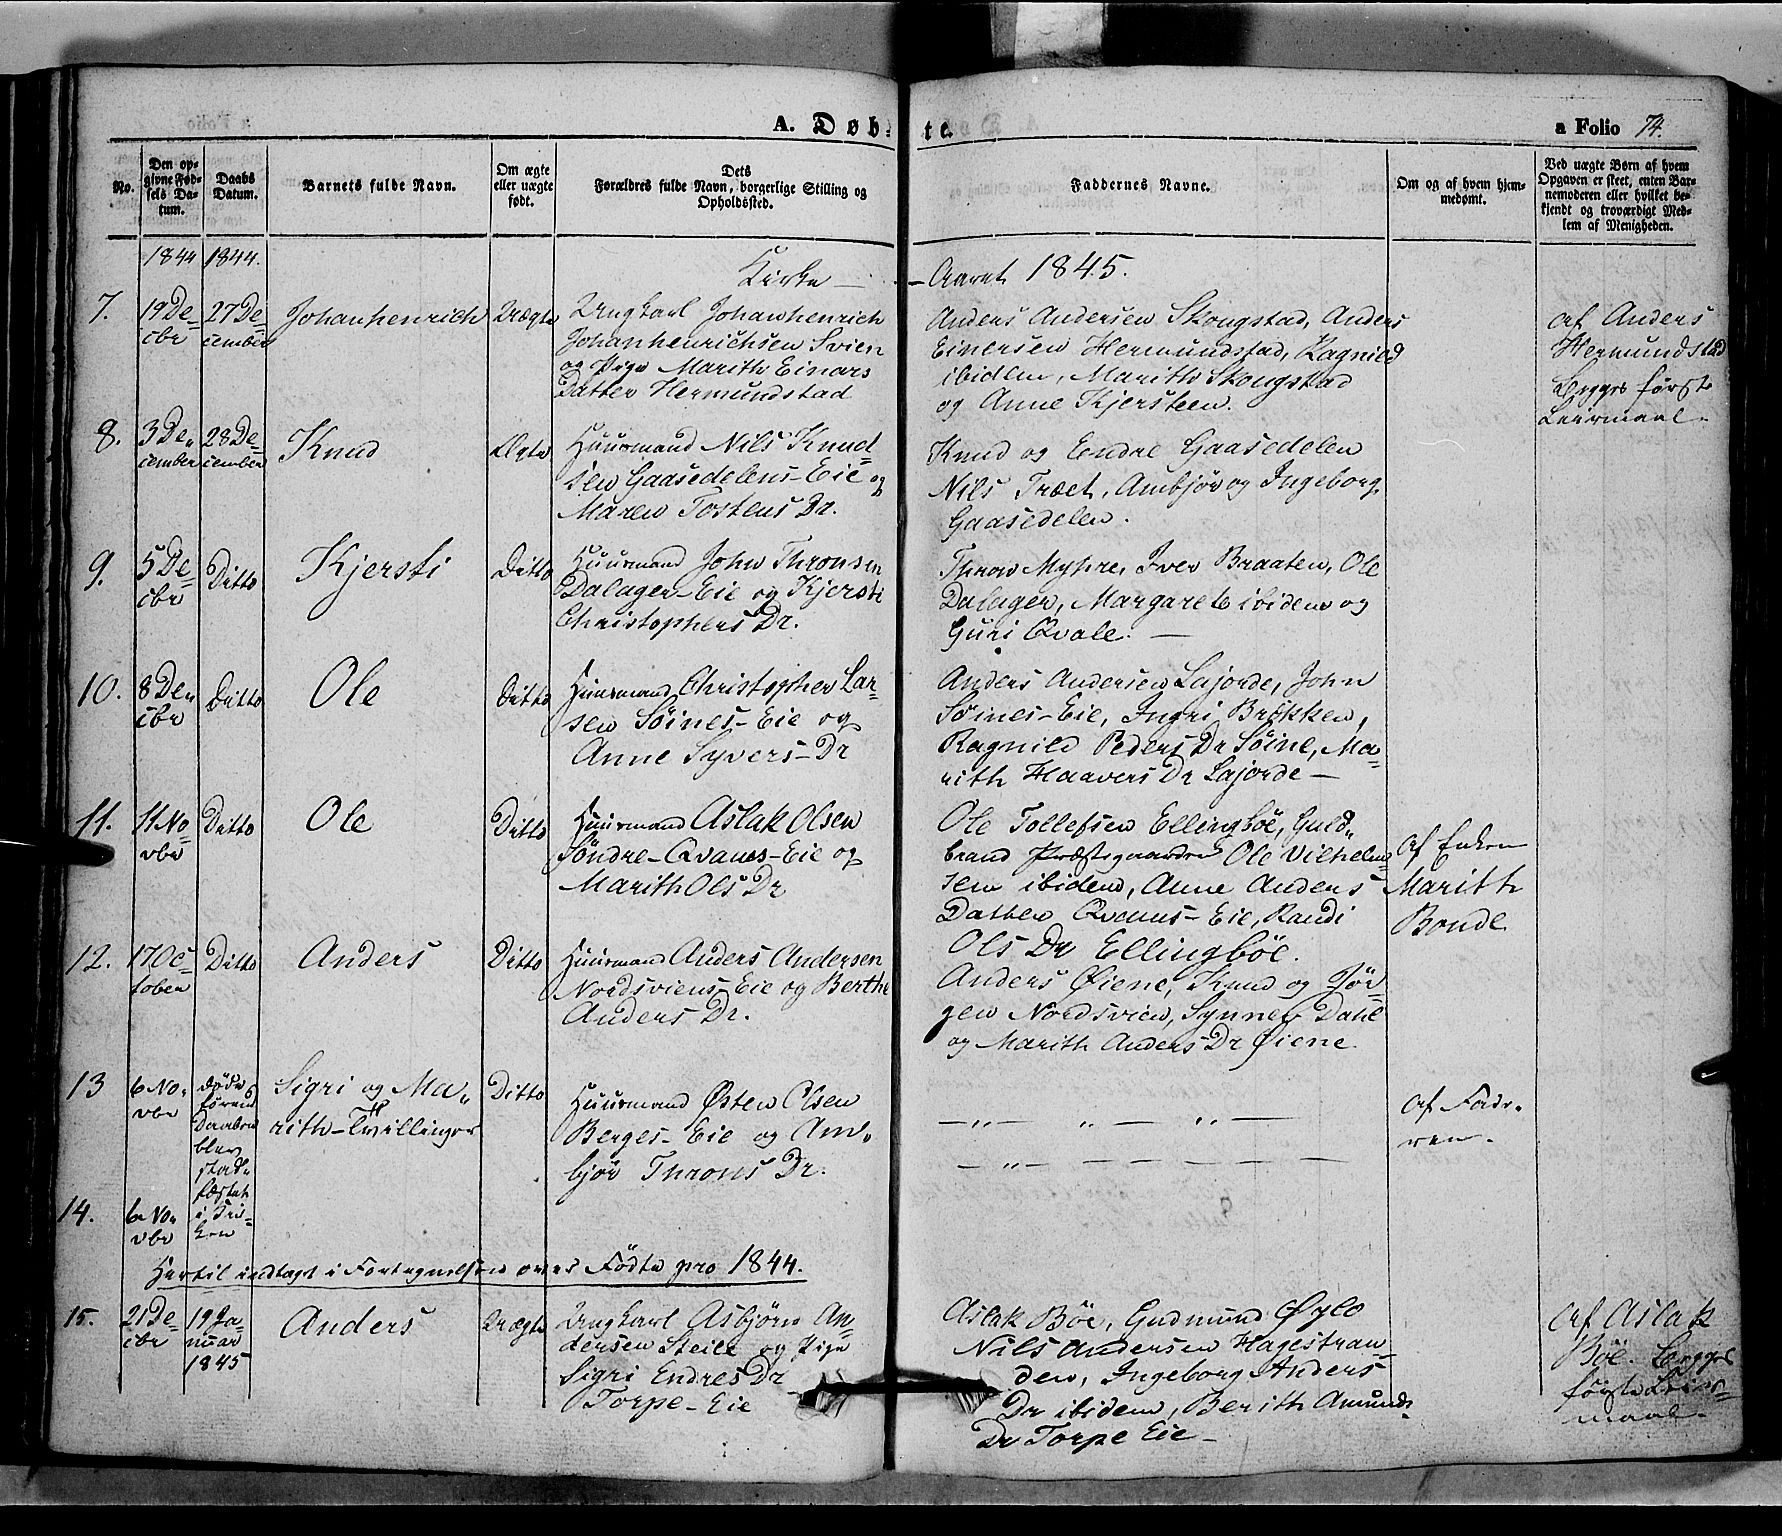 A. Døbte.
a Folio 74.
No.
Den opgivne Fødsels Datum.
Daabs Datum.
Barnets fulde Navn.
Om ægte eller uægte født.
Dets Forældres fulde Navn, borgerlige Stilling og Opholdssted.
Faddernes Navne.
Om og af hvem hjemmedømt.
Ved uægte Børn af hvem Opgaven er skeet, enten Barnemoderen eller hvilket bekjendt og troværdigt Medlem af Menigheden.
1844 1844.
Kirke — Aaret 1845.
7.
19 De=
cbr
27 De=
cember
Johanhenrich
Uægte
Ungkarl Johanhenrich
Johanhenrichsen Svien
og Pige Marith Einars
Datter Hermundstad
Anders Andersen Skougstad, Anders
Einersen Hermundstad, Ragnild
ibidem, Marith Skougstad
og Anne Kjersteen.
af Anders
Hermundstad
Begges første
Leiermaal.
8.
3 De=
cember
28 De=
cember
Knud
Ægte
Huusmand Nils Knud=
sen Gaasedelens-Eie og
Maren Tostens Dr.
Knud og Endre Gaasedelen
Nils Træet, Ambjør og Ingeborg
Gaasedelen.
9.
5 De=
cbr
Ditto
Kjersti
Ditto
Huusmand John Thronsen
Dalager-Eie og Kjersti
Christophers Dr.
Thron Myhre, Iver Braaten, Ole
Dalager, Margaret ibidem og
Guri Qvale. —
10.
8 De=
cbr
Ditto
Ole
Ditto
Huusmand Christopher Lar=
sen Søines-Eie og
Anne Syvers-Dr
Anders Andersen Lajorde, John
Søines-Eie, Ingri Brekken,
Ragnild Peders Dr Søine, Ma=
rith Haavers Dr Lajorde —
11.
11 No=
vbr
Ditto
Ole
Ditto
Huusmand Aslak Olsen
Søndre-Qvams-Eie og
Marith Ols Dr
Ole Tollefsen Ellingbøe, Guld=
brand Præstegaarden Ole Vilhelm=
sen ibidem, Anne Anders
Datter Qvams-Eie, Randi
Ols Dr Ellingbøe.
af Enken
Marith
Bonde
12.
17 Oc=
tober
Ditto
Anders
Ditto
Huusmand Anders Andersen
Nordsviens Eie og Berthe
Anders Dr.
Anders Øiene, Knud og Jør=
gen Nordsvien, Synnev Dahl
og Marith Anders Dr Øiene
13
6 No=
vbr
døde
førend
Daaben
blev
stad=
fæstet
i Kir=
ken
Sigri og Ma=
rith-Tvillinger
Ditto
Huusmand Østen Olsen
Berges-Eie og Am=
bjør Throns Dr.
— „ — „ — „ —
— „ — — — — —
af Fade=
ren.
14.
6 No=
vbr
Hertil indtaget i Fortegnelsen over Fødte pro 1844.
15.
21 De=
cbr
19 Ja=
nuar
1845
Anders
Uægte
Ungkarl Asbjørn An=
dersen Steile og Pige
Sigri Endres Dr
Torpe-Eie
Aslak Bøe, Gudmund Øylo
Nils Andersen Hagestran=
den, Ingeborg Anders
Dr ibidem, Berith Amunds
Dr Torpe Eie —
af Aslak
Bøe. Begges
første Leier=
maal.